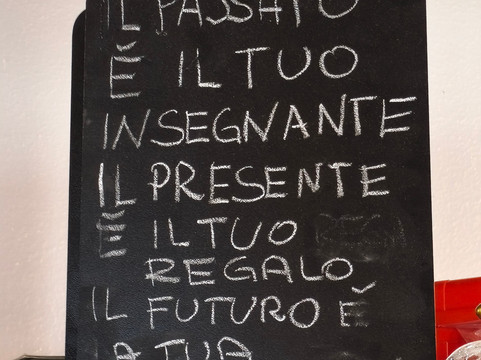 IL PASSATO
È IL TUO
INSEGNANTE
IL PRESENTE
È IL TUO
REGALO
IL FUTURO È
A TUA